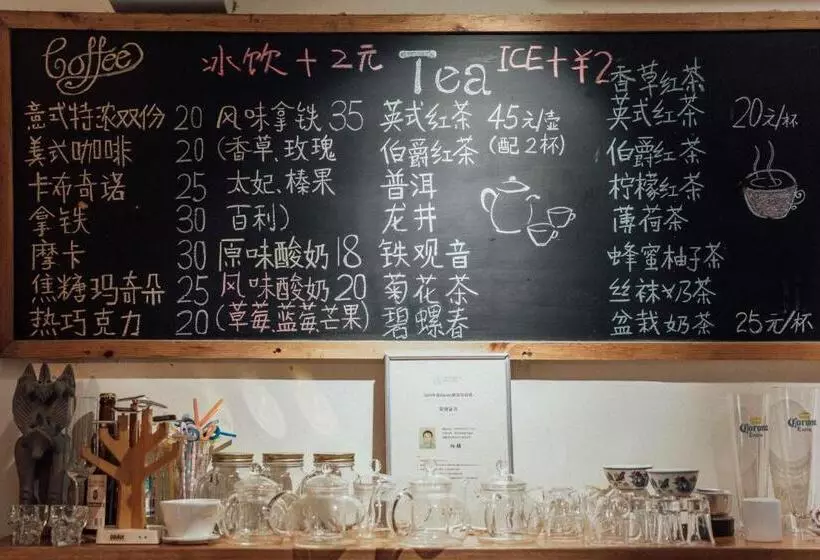 Coffee
意式特浓双份 20
美式咖啡 20
卡布奇诺 25
拿铁 30
摩卡 30
焦糖玛奇朵 25
热巧克力 20
冰饮 + 2元
风味拿铁 35
(香草、玫瑰
太妃、榛果
百利)
原味酸奶 18
风味酸奶 20
(草莓、蓝莓芒果)
Tea ICE + ¥2
英式红茶 45元/壶
伯爵红茶 (配2杯)
普洱
龙井
铁观音
菊花茶
碧螺春
香草红茶
英式红茶 20元/杯
伯爵红茶
柠檬红茶
薄荷茶
蜂蜜柚子茶
丝袜奶茶
盆栽奶茶 25元/杯
Corona
Extra
Corona
Extra